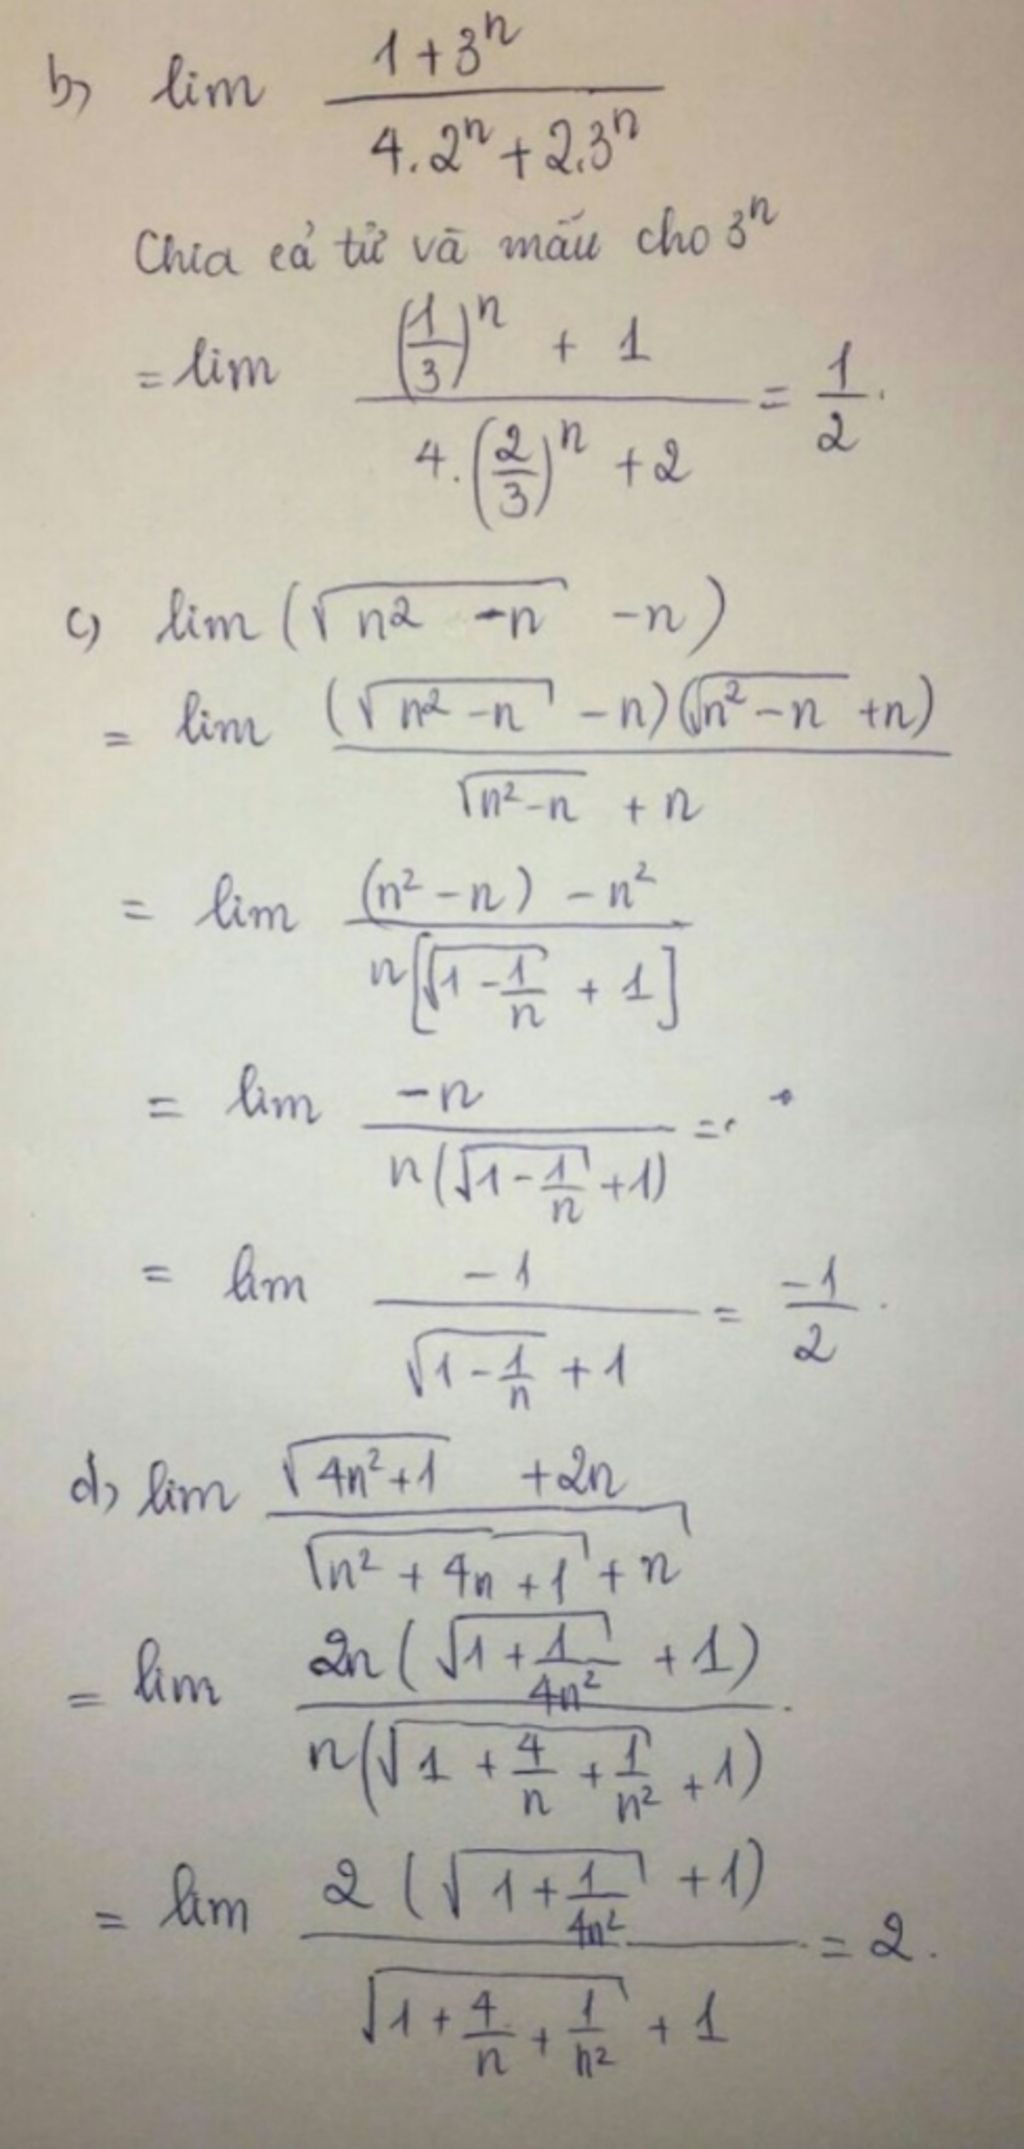 b) lim (1+3ⁿ)/(4.2ⁿ+2.3ⁿ)
Chia cả tử và mẫu cho 3ⁿ
= lim ((1/3)ⁿ + 1)/(4.(2/3)ⁿ + 2) = 1/2.
c) lim (√(n2 -n) -n)
= lim ((√(n²-n) -n)(√(n²-n) +n))/(√(n²-n) + n)
= lim ((n²-n) - n²)/(n[√(1-1/n) + 1])
= lim (-n)/(n(√(1-1/n) +1)) =
= lim (-1)/(√(1-1/n) + 1) = -1/2.
d) lim (√(4n²+1) +2n)/(√(n²+4n+1) + n)
= lim (2n(√(1+1/4n²) +1))/(n(√(1+4/n+1/n²) +1)).
= lim (2(√(1+1/4n²) +1))/(√(1+4/n+1/n²) + 1) = 2.